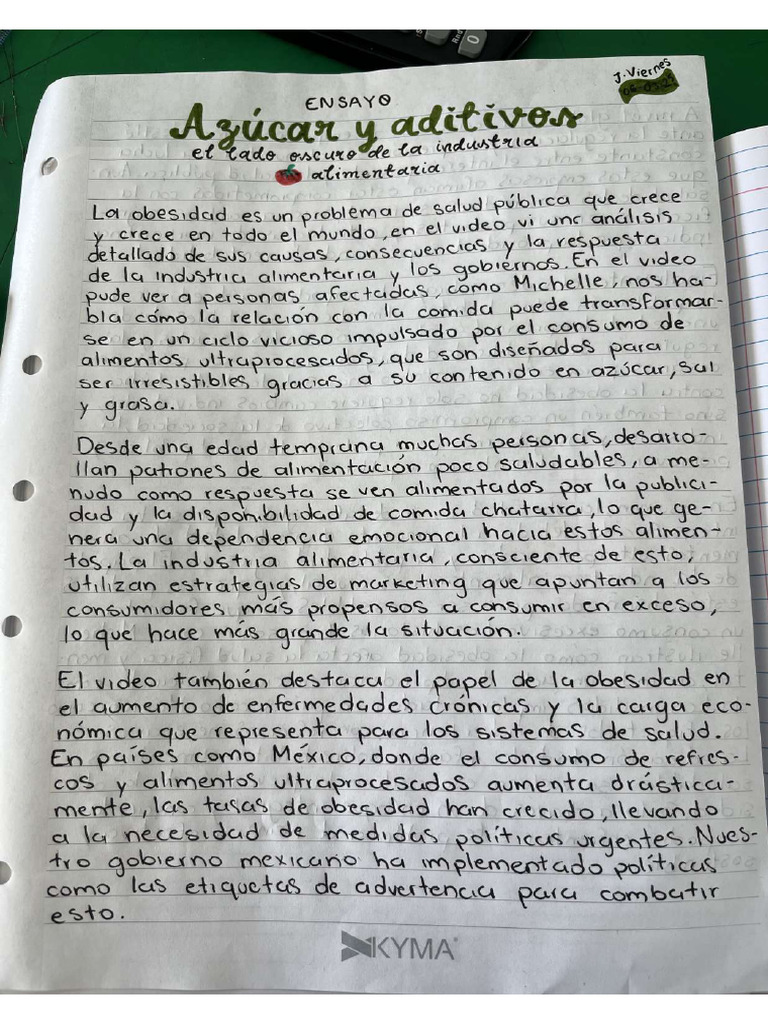 J. Viernes
ENSAYO
Azúcar y aditivos
el lado oscuro de la industria
alimentaria
La obesidad es un problema de salud pública que crece
y crece en todo el mundo, en el video vi unc análisis
detallado de sus causas, consecuencias y la respuesta
de la industria alimentaria y los gobiernos. En el video
pude ver a personas afectadas, como Michelle, nos ha-
bla cómo la relación con la comida puede transformar-
se en un ciclo vicioso impulsado por el consumo de
alimentos ultraprocesados, que son diseñados para
ser irresistibles gracias a su contenido en azúcar, sal
y grasa.
Desde una edad temprana muchas personas, desarro-
llan patrones de alimentación poco saludables, a me-
nudo como respuesta se ven alimentados por la publici-
dad y la disponibilidad de comida chatarra, lo que ge-
nera una dependencia emocional hacia estos alimen-
tos. La industria alimentaria, consciente de esto,
utilizan estrategias de marketing que apuntan a los
consumidores más propensos a consumir en exceso,
lo que hace más grande la situación.
El video también destaca el papel de la obesidad en
el aumento de enfermedades crónicas y la carga eco-
nómica que representa para los sistemas de salud.
En países como México, donde el consumo de refres-
cos y alimentos ultraprocesados aumenta drástica-
mente, las tasas de obesidad han crecido, llevando
a la necesidad de medidas políticas urgentes. Nues-
tro gobierno mexicano ha implementado políticas
como las etiquetas de advertencia para combatir
esto.
KYMA